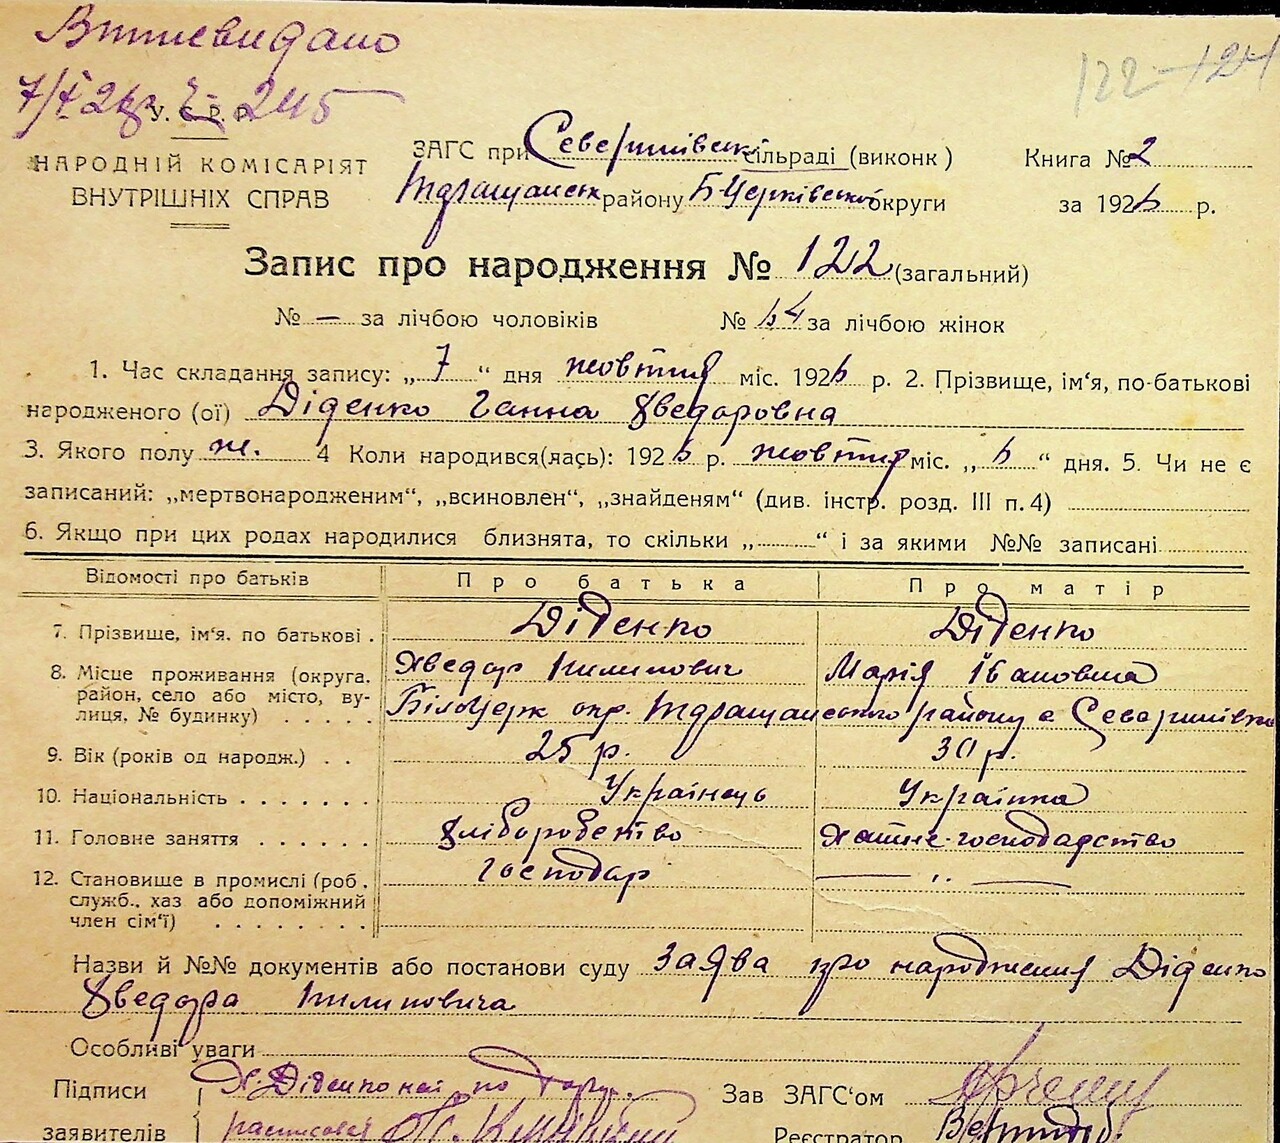 Витievидано
122 - 124
7/X 26 р. № 245
У. С. Р. Р.
НАРОДНІЙ КОМІСАРІЯТ
ВНУТРІШНІХ СПРАВ
ЗАГС при Северинівськ сільраді (виконк)
Книга № 2
Тдращанськ району Б-Церківської округи
за 1926 р.
Запис про народження № 122 (загальний)
№ — за лічбою чоловіків № 64 за лічбою жінок
1. Час складання запису: „ 7 “ дня жовтня міс. 1926 р. 2. Прізвище, ім‘я, по-батькові
народженого (ої) Діденко Ганна Хведоровна
3. Якого полу ж. 4 Коли народився(лась): 1926 р. жовтня міс. „ 6 “ дня. 5. Чи не є
записаний: „мертвонародженим“, „всиновлен“, „знайденям“ (див. інстр. розд. III п. 4)
6. Якщо при цих родах народилися близнята, то скільки „ “ і за якими №№ записані
Відомості про батьків Про батька Про матір
7. Прізвище, ім‘я. по батькові . Діденко Діденко
Хведор Пилипович Марія Івановна
8. Місце проживання (округа.
район, село або місто, ву-
лиця, № будинку) . . . . . Білоцерк окр. Тдращанського району с Северинівка
9. Вік (років од народж.) . . 25 р. 30 р.
10. Національність . . . . . . . Українець Українка
11. Головне заняття . . . . . . хліборобство хатнє-господарство
12. Становище в промислі (роб.
служб., хаз або допоміжний
член сім‘ї) . . . . . . . . господар — „ —
Назви й №№ документів або постанови суду Заява про народження Діденко
Хведора Пилиповича
Особливі уваги
Підписи Х. Діденко
заявителів расписався
Зав ЗАГС‘ом
Реєстратор